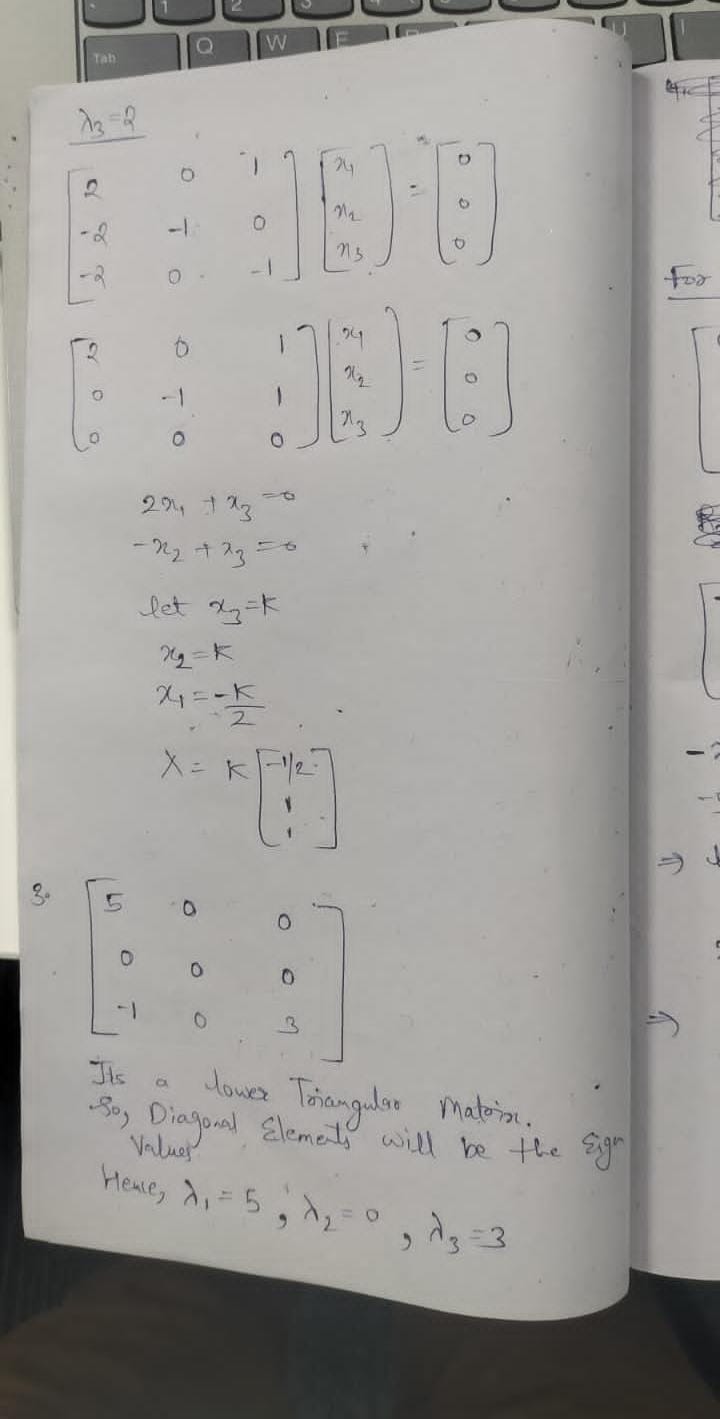 1 2 3
Tab Q W E U I
λ₃=2
[2 0 1] [x₁] = [0]
[-2 -1 0] [x₂] [0]
[-2 0 -1] [x₃] [0]
[2 0 1] [x₁] = [0]
[0 -1 1] [x₂] [0]
[0 0 0] [x₃] [0]
2x₁ + x₃ =0
-x₂ + x₃ =0
let x₃=K
x₂=K
x₁=-K/2
X= K [-1/2]
[1]
[1]
3. [5 0 0]
[0 0 0]
[-1 0 3]
Its a lower Triangular Matrix.
So, Diagonal Elements will be the Eign
Values
Hence, λ₁=5, λ₂=0, λ₃=3
For
⇒
⇒